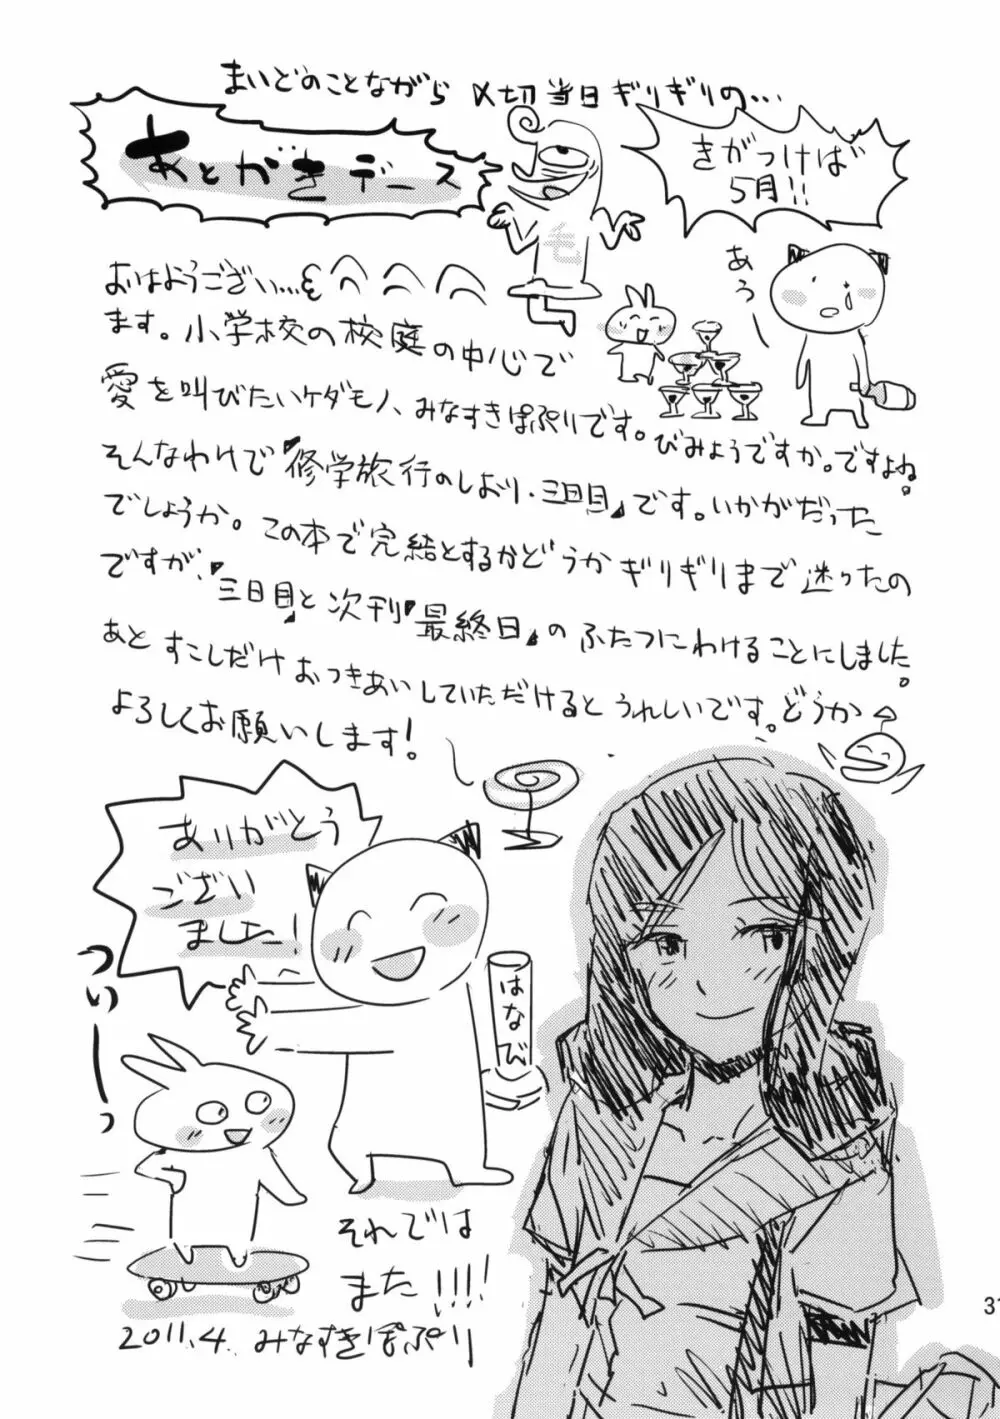 まいどのことながら 〆切当日ギリギリの…
あとがきデース
きがつけば
5月!!
あうー
毛
おはようござい…
ます。小学校の校庭の中心で
愛を叫びたいケダモノ、みなすきぽぷりです。びみょうですか。ですよね。
そんなわけで『修学旅行のしおり・三日目』です。いかがだった
でしょうか。この本で完結とするかどうかギリギリまで迷ったの
ですが、『三日目』と次刊『最終日』のふたつにわけることにしました。
あとすこしだけおつきあいしていただけるとうれしいです。どうか
よろしくお願いします!
ありがとう
ござい
ました!
はなび
ついーっ
それでは
また!!!!
2011.4. みなすきぽぷり